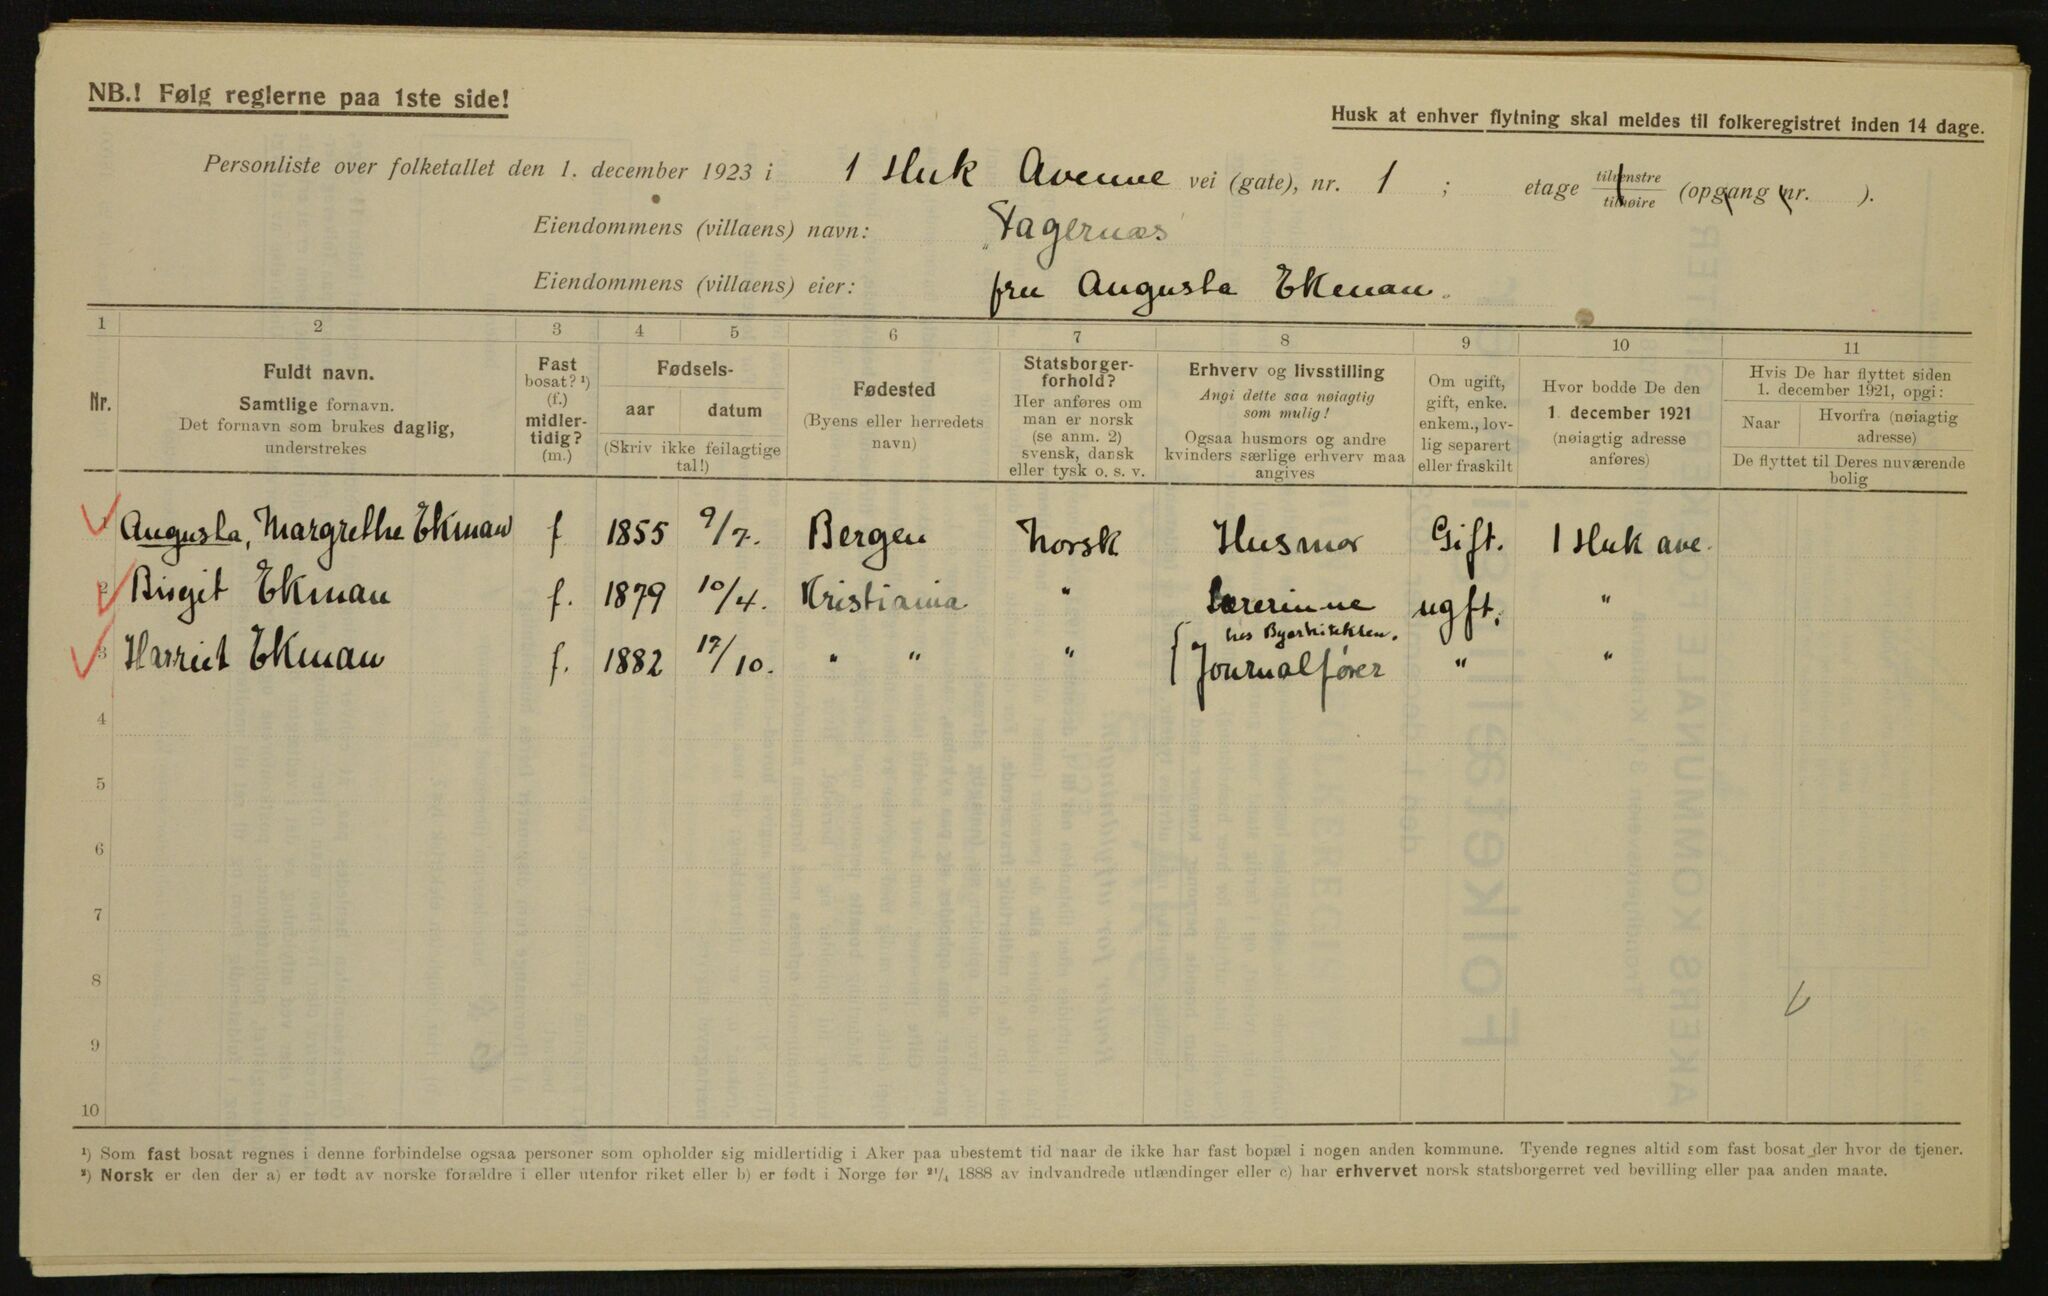 NB.! Følg reglerne paa 1ste side!
Husk at enhver flytning skal meldes til folkeregistret inden 14 dage.
Personliste over folketallet den 1. december 1923 i 1 Huk Avenue vei (gate), nr. 1 ; etage tilvenstre / tilhøire (opgang nr. ).
Eiendommens (villaens) navn: "Fagernæs"
Eiendommens (villaens) eier: fru Augusta Ekman.
1 2 3 4 5 6 7 8 9 10 11
Nr.
Fuldt navn.
Samtlige fornavn.
Det fornavn som brukes daglig,
understrekes
Fast
bosat? ¹)
(f.)
midler-
tidig?
(m.)
Fødsels-
aar datum
(Skriv ikke feilagtige
tal!)
Fødested
(Byens eller herredets
navn)
Statsborger-
forhold?
Her anføres om
man er norsk
(se anm. 2)
svensk, dansk
eller tysk o. s. v.
Erhverv og livsstilling
Angi dette saa nøiagtig
som mulig!
Ogsaa husmors og andre
kvinders særlige erhverv maa
angives
Om ugift,
gift, enke.
enkem., lov-
lig separert
eller fraskilt
Hvor bodde De den
1. december 1921
(nøiagtig adresse
anføres)
Hvis De har flyttet siden
1. december 1921, opgi:
Naar Hvorfra (nøiagtig
adresse)
De flyttet til Deres nuværende
bolig
1 Augusta, Margrethe Ekman f 1855 9/7. Bergen Norsk Husmor Gift. 1 Huk ave.
2 Birgit Ekman f. 1879 10/4. Kristiania " Lærerinne ugft. "
hos Byarkitekten.
3 Harriet Ekman f. 1882 17/10. " " " Journalfører " "
4
5
6
7
8
9
10
¹) Som fast bosat regnes i denne forbindelse ogsaa personer som opholder sig midlertidig i Aker paa ubestemt tid naar de ikke har fast bopæl i nogen anden kommune. Tyende regnes altid som fast bosat der hvor de tjener.
²) Norsk er den der a) er født av norske forældre i eller utenfor riket eller b) er født i Norge før ²¹/₄ 1888 av indvandrede utlændinger eller c) har erhvervet norsk statsborgerret ved bevilling eller paa anden maate.